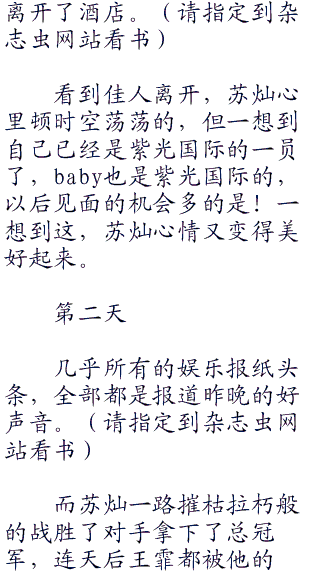 离开了酒店。（请指定到杂
志虫网站看书）
看到佳人离开，苏灿心
里顿时空荡荡的，但一想到
自己已经是紫光国际的一员
了，baby也是紫光国际的，
以后见面的机会多的是！一
想到这，苏灿心情又变得美
好起来。
第二天
几乎所有的娱乐报纸头
条，全部都是报道昨晚的好
声音。（请指定到杂志虫网
站看书）
而苏灿一路摧枯拉朽般
的战胜了对手拿下了总冠
军，连天后王霏都被他的